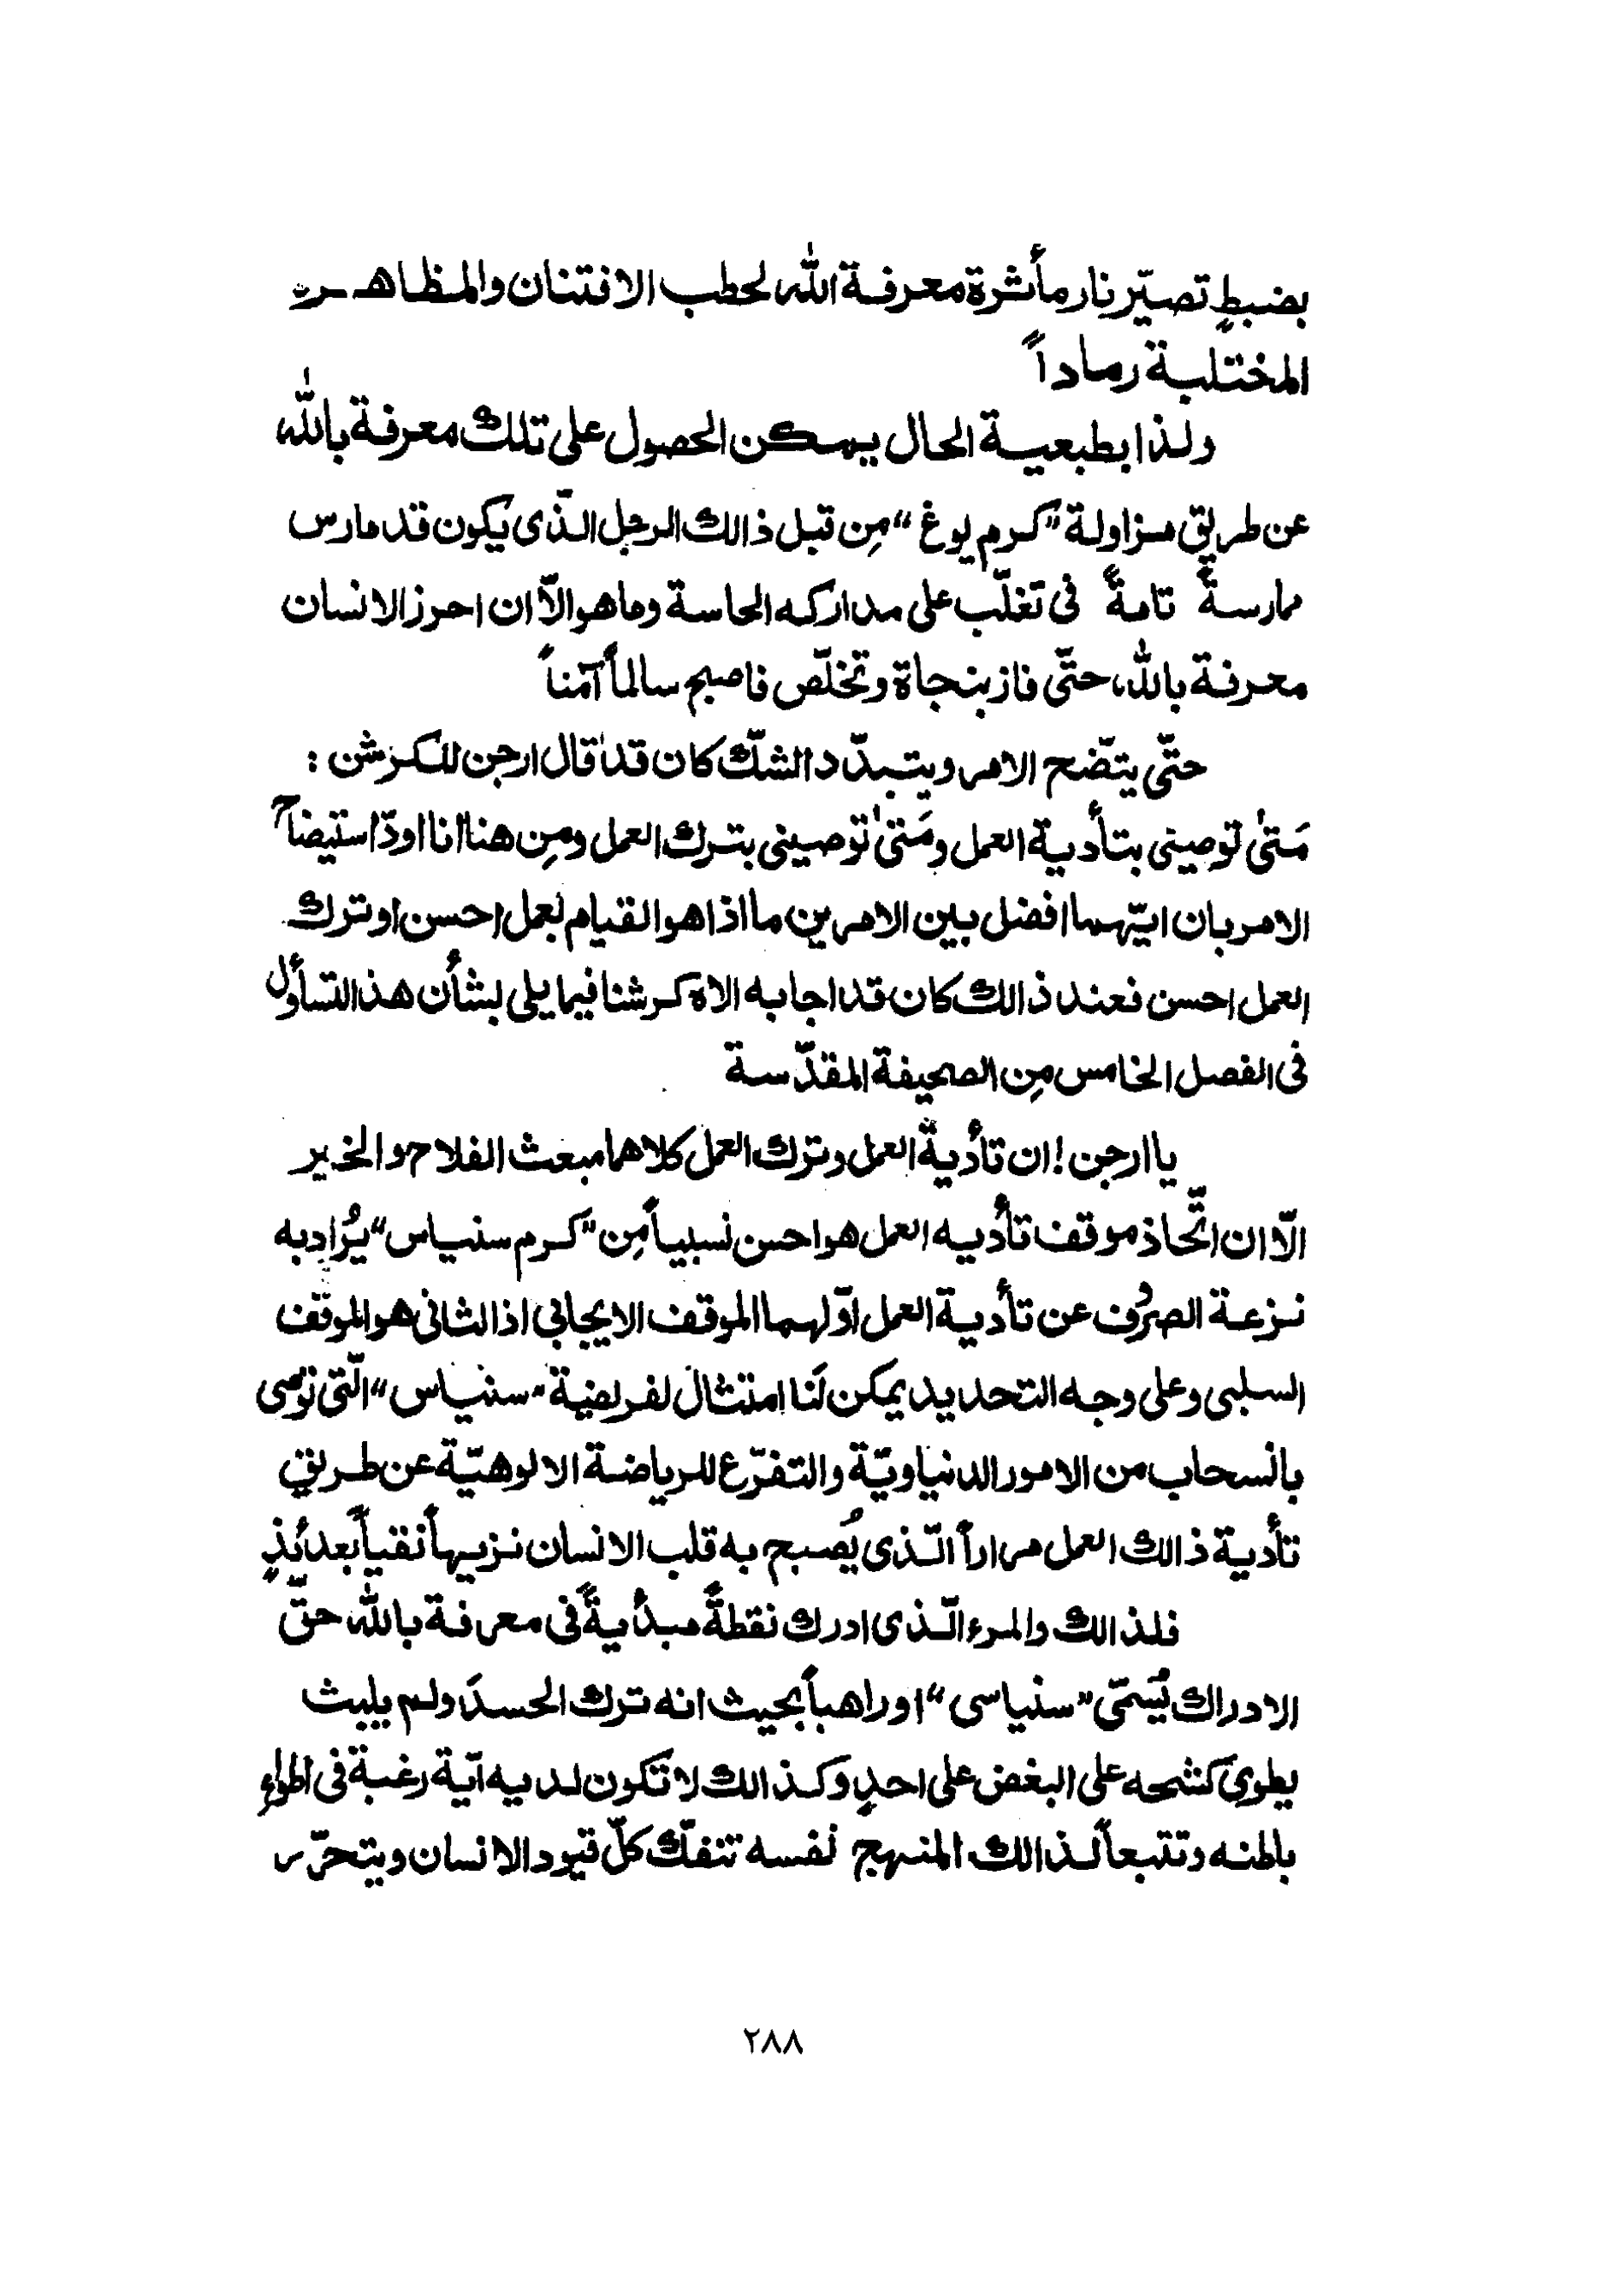 بضبطٍ تصيّر نار مأثرة معرفة الله لحطب الافتنان والمظاهر
المختلبة رماداً
ولذا بطبعية الحال يمكن الحصول على تلك معرفة بالله
عن طريق مزاولة "كرم يوغ" مِن قبل ذالك الرجل الّذى يكون قد مارس
ممارسةً تامةً فى تغلّب على مداركه الحاسة وما هو الاّ ان احرز الانسان
معرفة بالله، حتّى فاز بنجاة وتخلّص فاصبح سالماً آمناً
حتّى يتّضح الامر ويتبدّد الشكّ كان قد قال ارجن للكرشن :
مَتىٰ توصينى بتأدية العمل ومَتىٰ توصينى بترك العمل ومِن هنا انا اودّ استيضاح
الامر بان ايّهما افضل بين الامرين ما اذا هو القيام بعمل احسن او ترك
العمل احسن فعند ذالك كان قد اجابه الاه كرشنا فيما يلى بشأن هذ التسأول
فى الفصل الخامس مِن الصحيفة المقدّسة
يا ارجن ! ان تأدية العمل وترك العمل كلاهما مبعث الفلاح والخير
الاّ ان اتّخاذ موقف تأديه العمل هو احسن نسبياً مِن "كرم سنياس" يُراد به
نزعة الصرُف عن تأدية العمل اوّلهما الموقف الايجابي اذ الثانى هو الموقف
السلبى وعلى وجه التحديد يمكن لَنا امتثال لفريضية "سنياس" الّتى توصى
بانسحاب من الامور الدنياويّة والتفرّع للرياضة الالوهيّة عن طريق
تأدية ذالك العمل مراراً الّذى يُصبح به قلب الانسان نزيهاً نقياً بعدئذٍ
فلذالك والمرء الّذى ادرك نقطةً مبدأيةً فى معرفة بالله، حقّ
الادراك يُسمّى "سنياسى" او راهباً بحيث انه ترك الحسدَ ولم يلبث
يطوى كشحه على البغض على احدٍ وكذالك لا تكون لديه اَية رغبة فى اطواءِ
باطنه وتتبعاً لذالك المنهج نفسه تنفكّ كلّ قيود الانسان ويتحرّر
٢٨٨